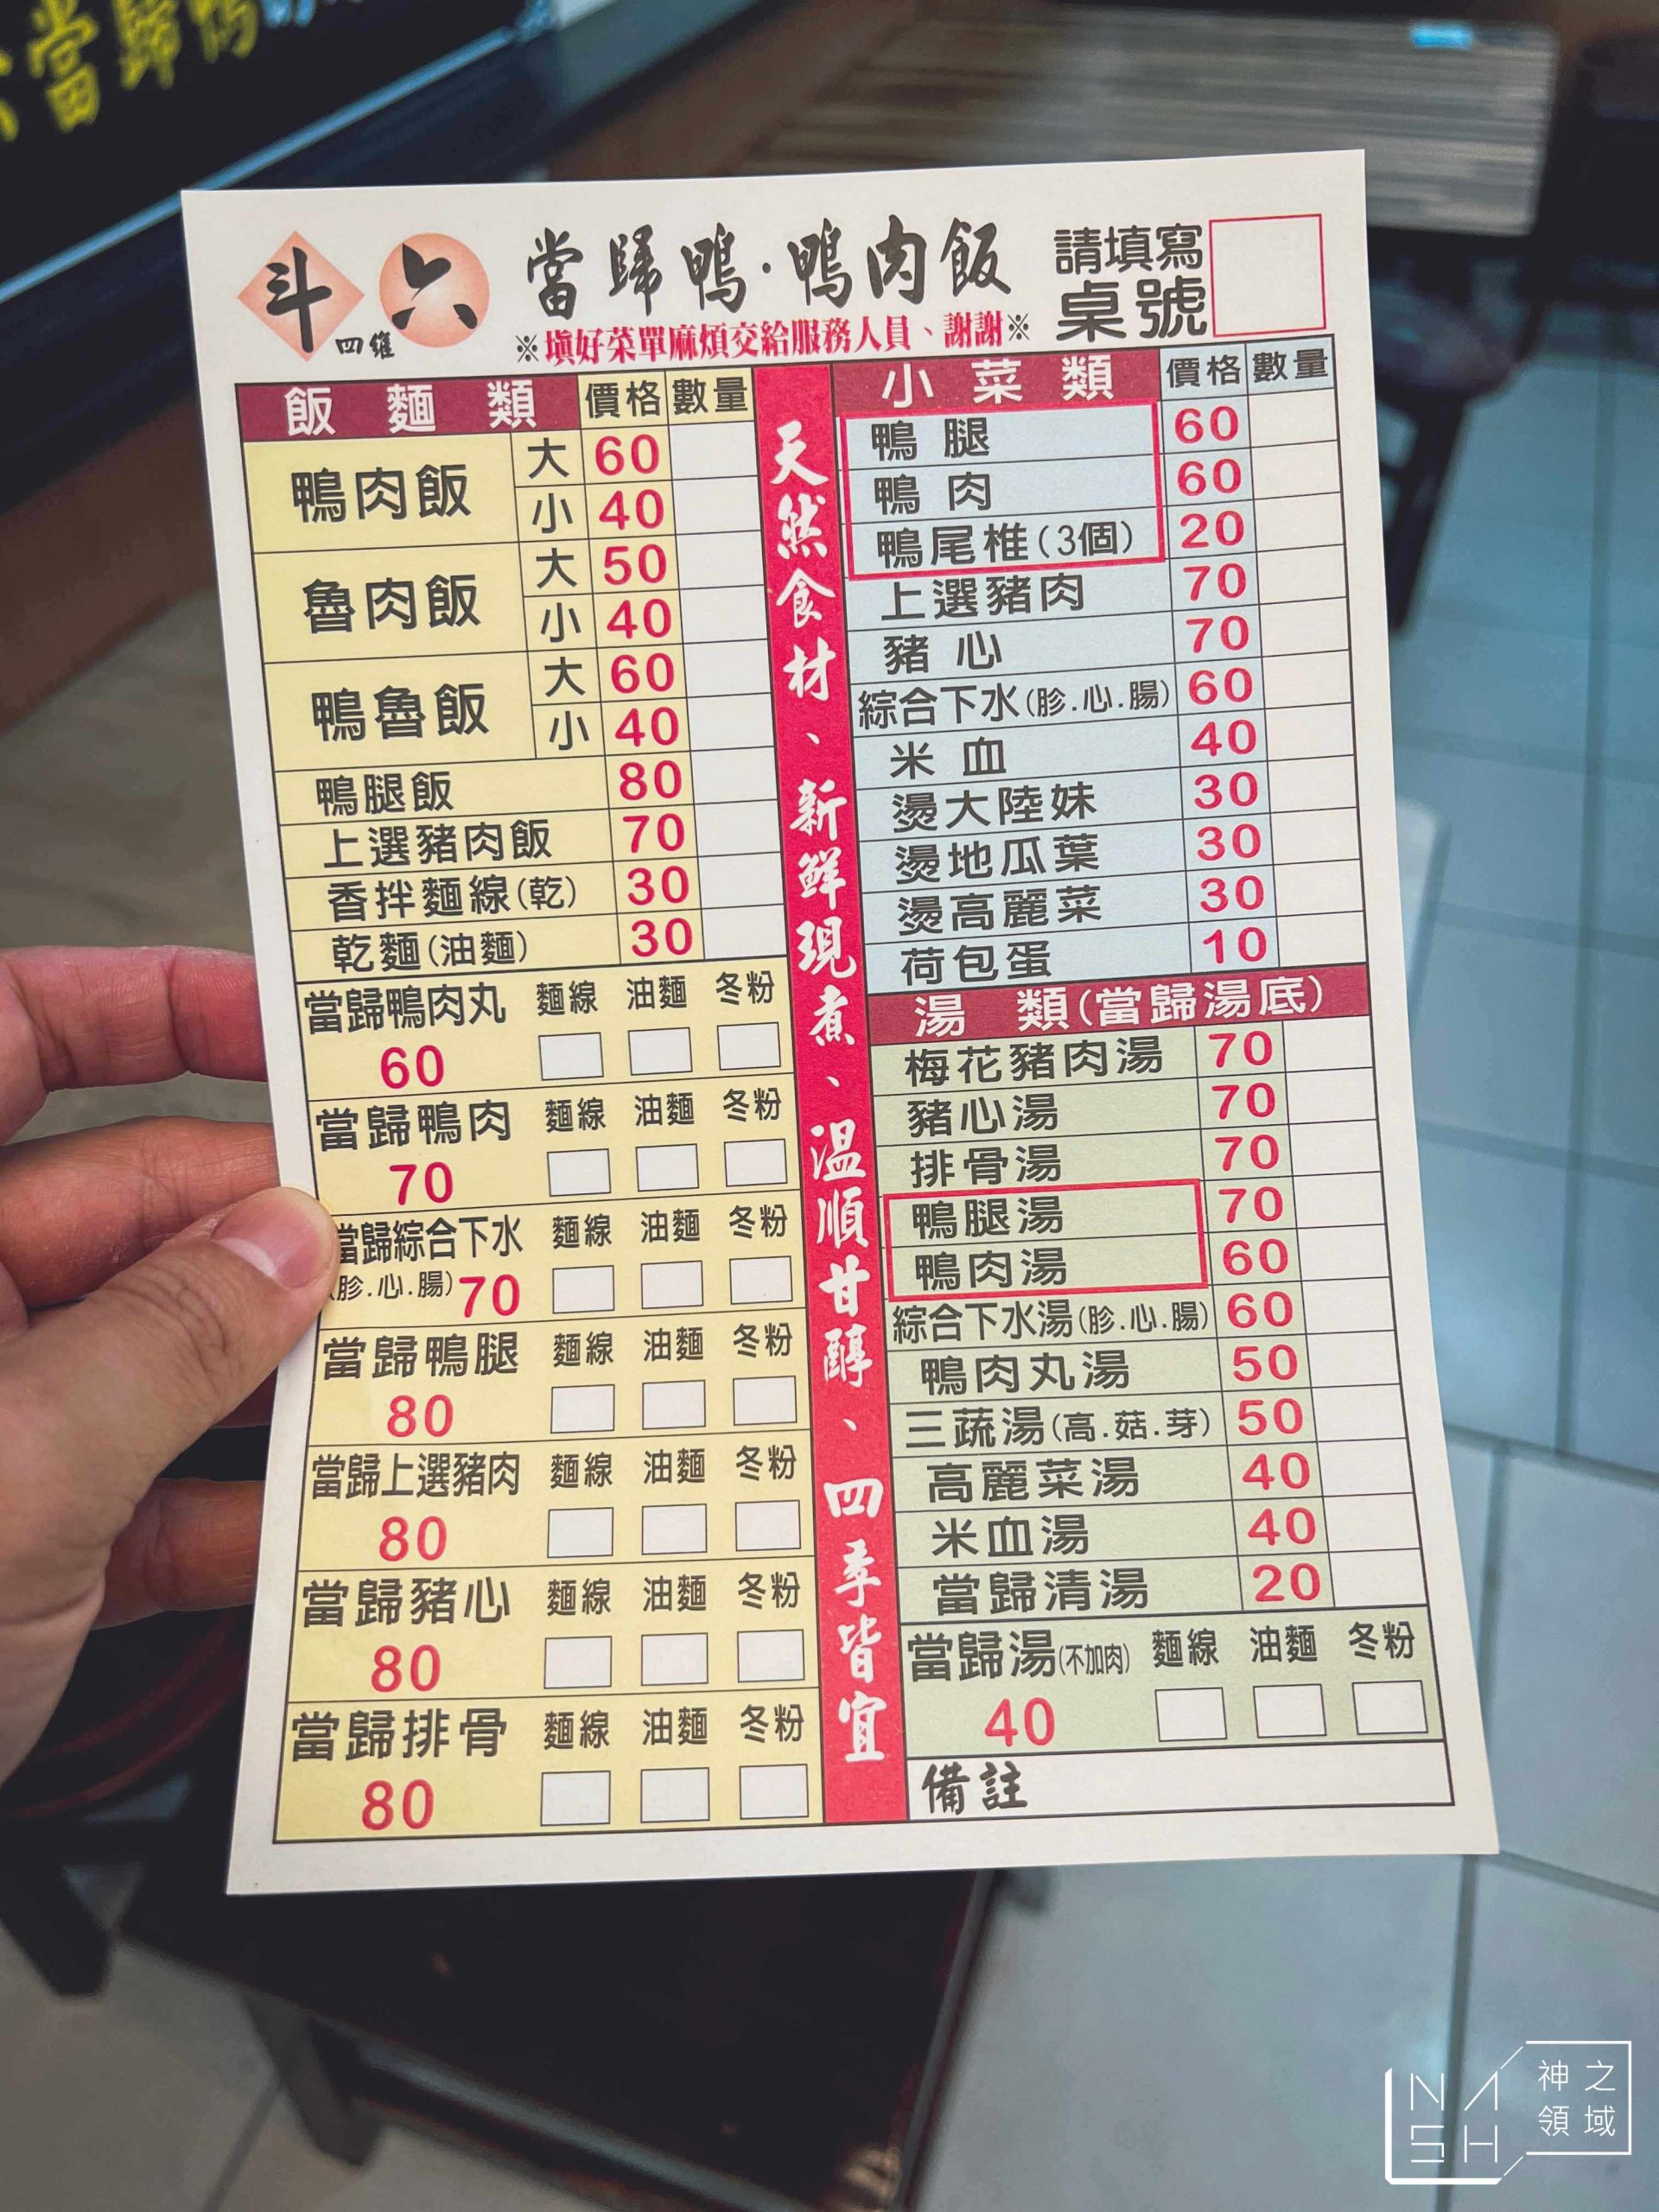 當歸鴨
斗六
四維
當歸鴨·鴨肉飯
※填好菜單麻煩交給服務人員、謝謝※
請填寫
桌號
飯麵類 價格 數量
鴨肉飯 大 60
小 40
魯肉飯 大 50
小 40
鴨魯飯 大 60
小 40
鴨腿飯 80
上選豬肉飯 70
香拌麵線(乾) 30
乾麵(油麵) 30
當歸鴨肉丸 麵線 油麵 冬粉
60
當歸鴨肉 麵線 油麵 冬粉
70
當歸綜合下水 麵線 油麵 冬粉
(胗.心.腸) 70
當歸鴨腿 麵線 油麵 冬粉
80
當歸上選豬肉 麵線 油麵 冬粉
80
當歸豬心 麵線 油麵 冬粉
80
當歸排骨 麵線 油麵 冬粉
80
天然食材、新鮮現煮、溫順甘醇、四季皆宜
小菜類 價格 數量
鴨腿 60
鴨肉 60
鴨尾椎(3個) 20
上選豬肉 70
豬心 70
綜合下水(胗.心.腸) 60
米血 40
燙大陸妹 30
燙地瓜葉 30
燙高麗菜 30
荷包蛋 10
湯類(當歸湯底)
梅花豬肉湯 70
豬心湯 70
排骨湯 70
鴨腿湯 70
鴨肉湯 60
綜合下水湯(胗.心.腸) 60
鴨肉丸湯 50
三蔬湯(高.菇.芽) 50
高麗菜湯 40
米血湯 40
當歸清湯 20
當歸湯(不加肉) 麵線 油麵 冬粉
40
備註
NASH
神之領域